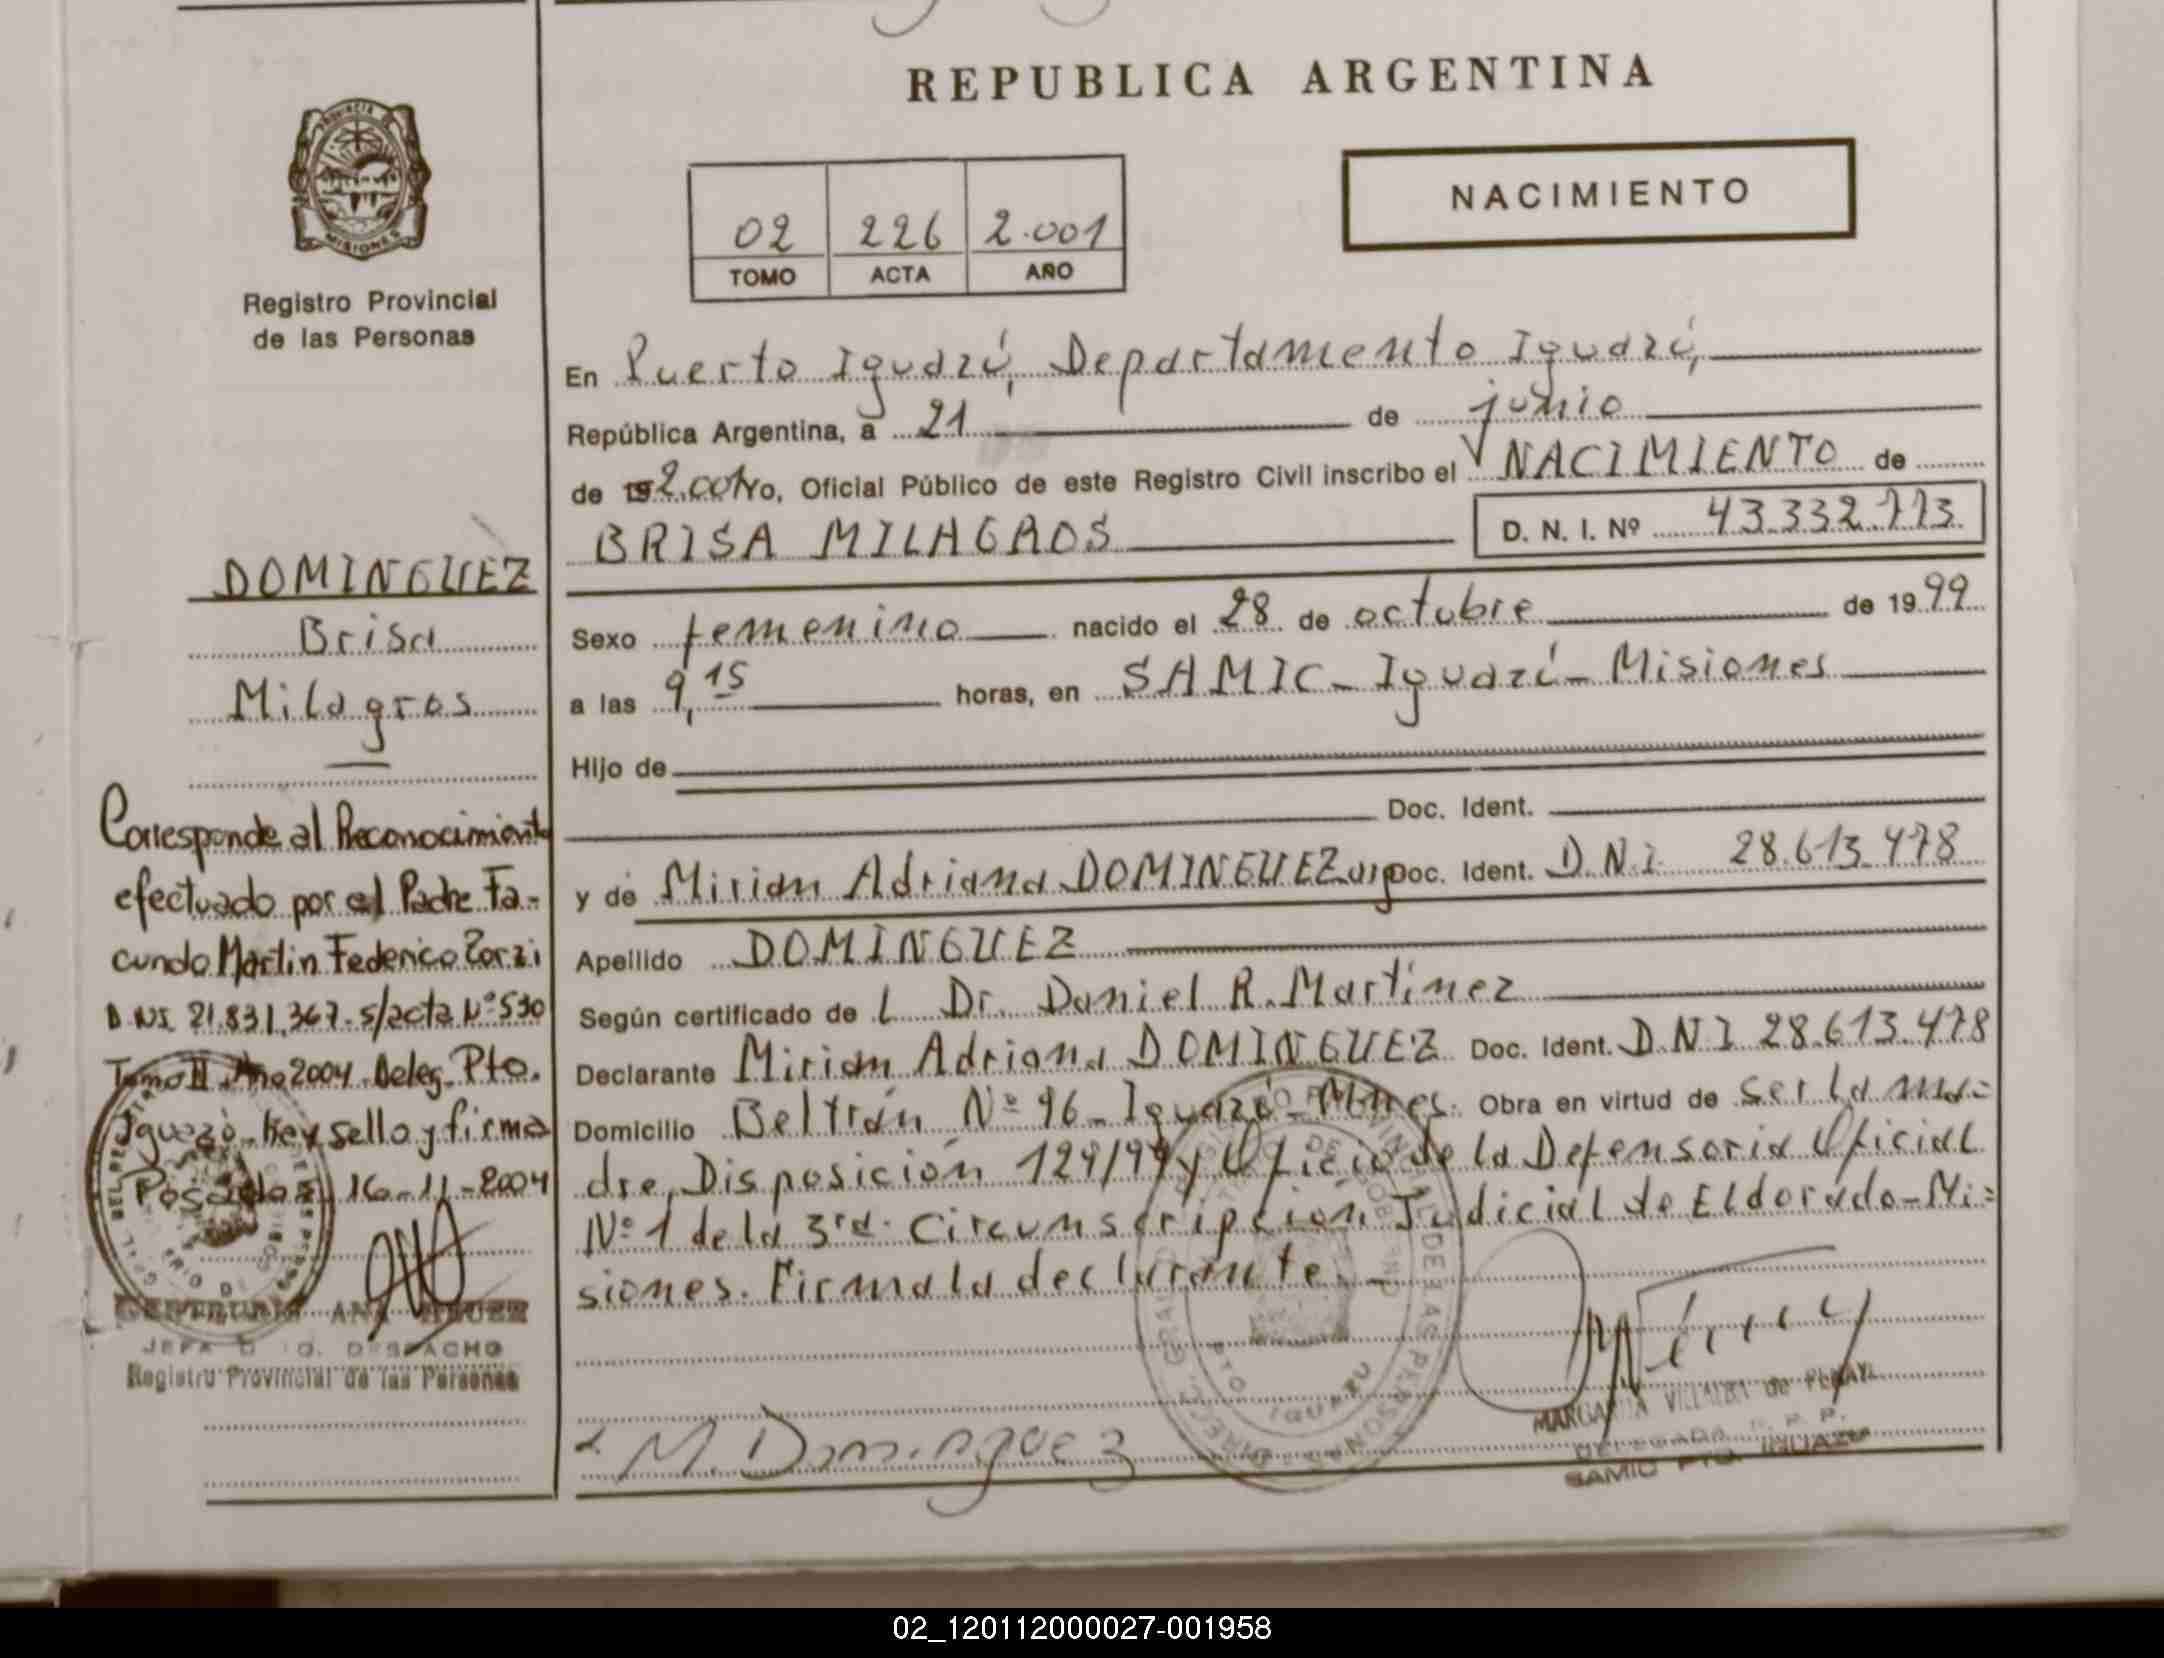 REPUBLICA ARGENTINA
PROVINCIA DE
MISIONES
Registro Provincial
de las Personas
02 226 2.001
TOMO ACTA AÑO
NACIMIENTO
En Puerto Iguazú, Departamento Iguazú,
República Argentina, a 21 de junio
de 192.001 Yo, Oficial Público de este Registro Civil inscribo el NACIMIENTO de
BRISA MILAGROS D. N. I. Nº 43.332.773
Sexo femenino nacido el 28 de octubre de 1999
a las 9,15 horas, en SAMIC - Iguazú - Misiones
Hijo de
Doc. Ident.
y de Mirian Adriana DOMINGUEZ arg Doc. Ident. D.N.I. 28.613.478
Apellido DOMINGUEZ
Según certificado de L Dr. Daniel R. Martínez
Declarante Mirian Adriana DOMINGUEZ Doc. Ident. D.N.I 28.613.478
Domicilio Beltrán Nº 96 - Iguazú - Mnes. Obra en virtud de ser la ma-
dre, Disposición 129/99 y Oficio de la Defensoria Oficial
Nº 1 de la 3ra. Circunscripcion Judicial de Eldorado - Mi-
siones. Firma la declarante.-
M. Dominguez
MARGARITA VILLALBA de
DELEGADA R. P. P.
SAMIC PTO. IGUAZU
DOMINGUEZ
Brisa
Milagros
Corresponde al Reconocimiento
efectuado por el Padre Fa-
cundo Martin Federico Zorzi
D.NI. 21.831.367. s/acta Nº 530
Tomo II Año 2004. Deleg. Pto.
Iguazú - Hay sello y firma
Posadas, 16-11-2004
ANA
JEFA D O. DESPACHO
Registro Provincial de las Personas
02_120112000027-001958